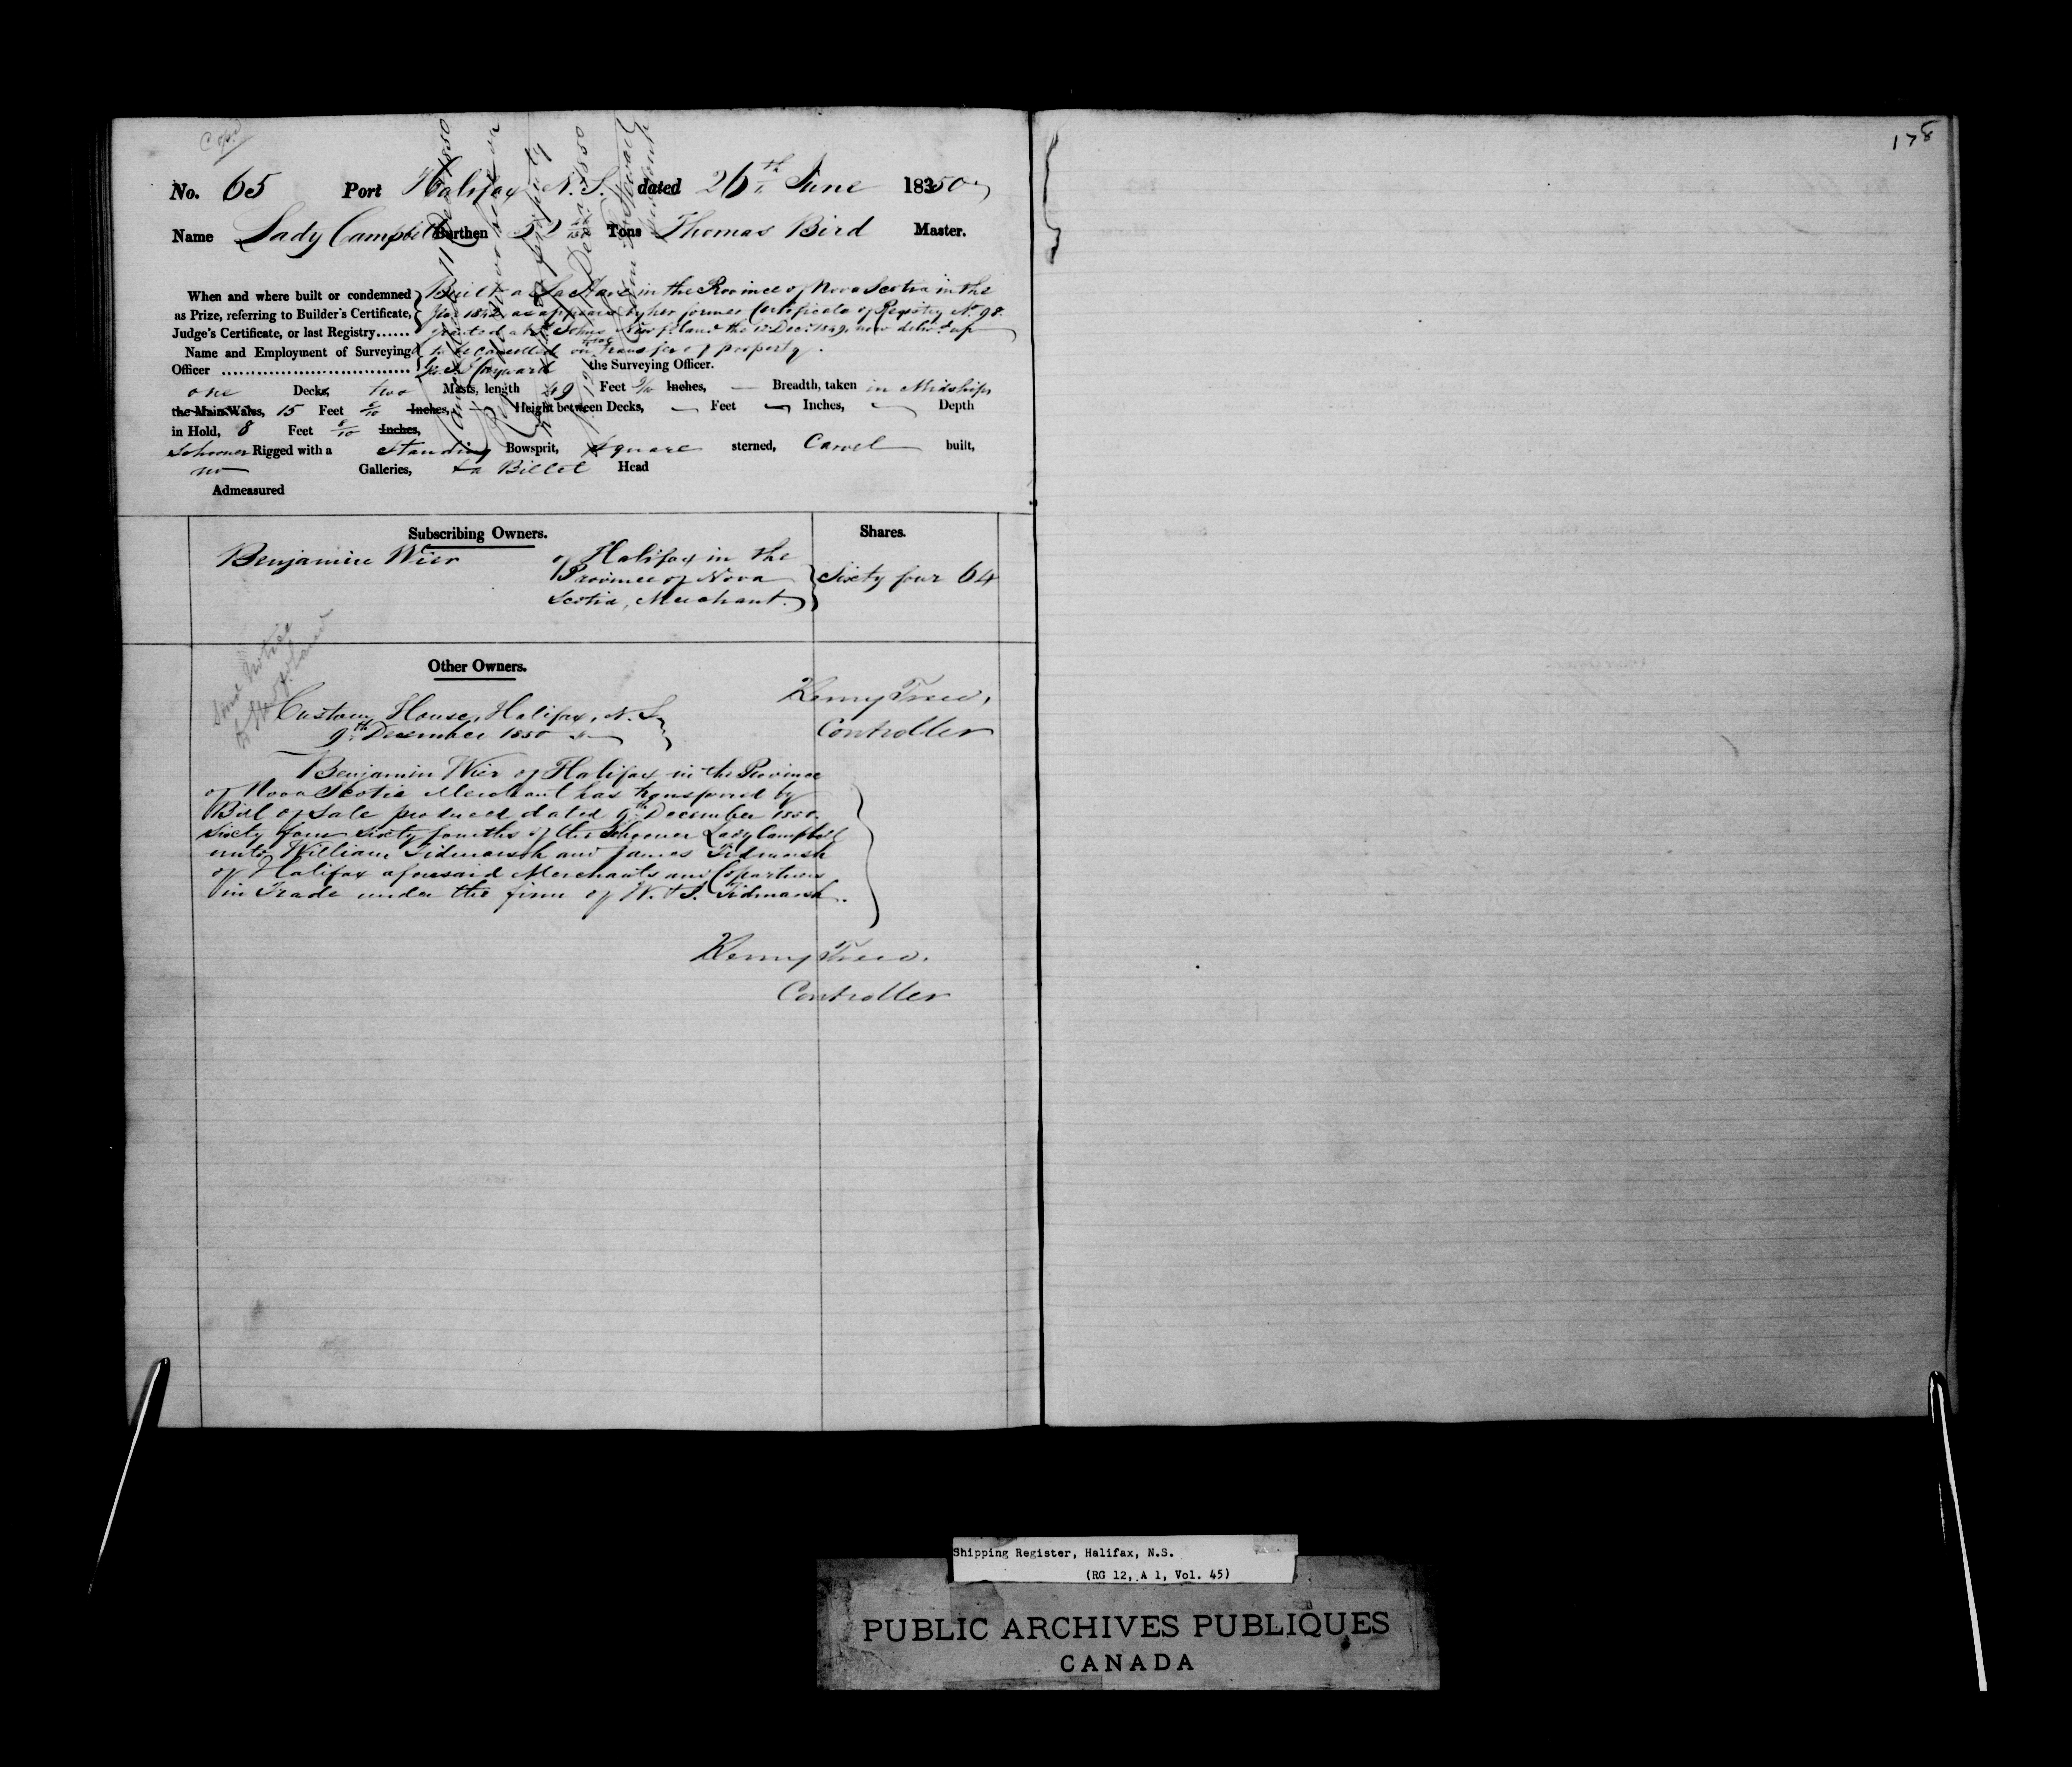 Copd
178
No. 65 Port Halifax N.S. dated 26th June 1850
Name Lady Campbell Burthen 52 Tons Thomas Bird Master.
When and where built or condemned as Prize, referring to Builder's Certificate, Judge's Certificate, or last Registry......
Built a LaHave in the Province of Nova Scotia in the
year 1842 as appears by her former Certificate of Registry No. 98.
granted at St Johns Newfoland the 12 Dec. 1849, now deliv.d up
to be cancelled on transfer of property.
Name and Employment of Surveying
Officer Hayward the Surveying Officer.
one Decks, two Masts, length 49 Feet Inches, Breadth, taken in Midships
the Main Wales, 15 Feet Inches, Height between Decks, Feet Inches, Depth
in Hold, 8 Feet 8/10 Inches,
Schooner Rigged with a Standing Bowsprit, square sterned, Carvel built,
no Galleries, & a Billet Head
Admeasured
Subscribing Owners. Shares.
Benjamin Wier of Halifax in the
Province of Nova
Scotia, Merchant. Sixty four 64
Other Owners.
Custom House, Halifax, N.S.
9th December 1850
Controller
Benjamin Wier of Halifax in the Province
of Nova Scotia Merchant has transferred by
Bill of Sale produced dated 9th December 1850.
Sixty four sixty fourths of the Schooner Lady Campbell
unto William Tidmarsh and James Tidmarsh
of Halifax aforesaid Merchants and Copartners
in Trade under the firm of W. & J. Tidmarsh.
Controller
Shipping Register, Halifax, N.S.
(RG 12, A 1, Vol. 45)
PUBLIC ARCHIVES PUBLIQUES
CANADA